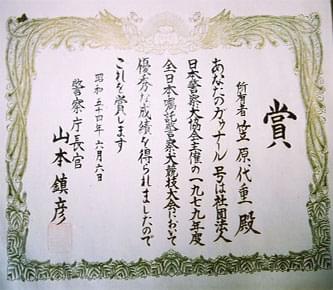 賞
所有者 笠原代重 殿
あなたのガゥナール号は社団法人
日本警察犬協会主催の一九七九年度
全日本嘱託警察犬競技大会において
優秀な成績を得られましたので
これを賞します
昭和五十四年六月六日
警察庁長官
山本鎮彦